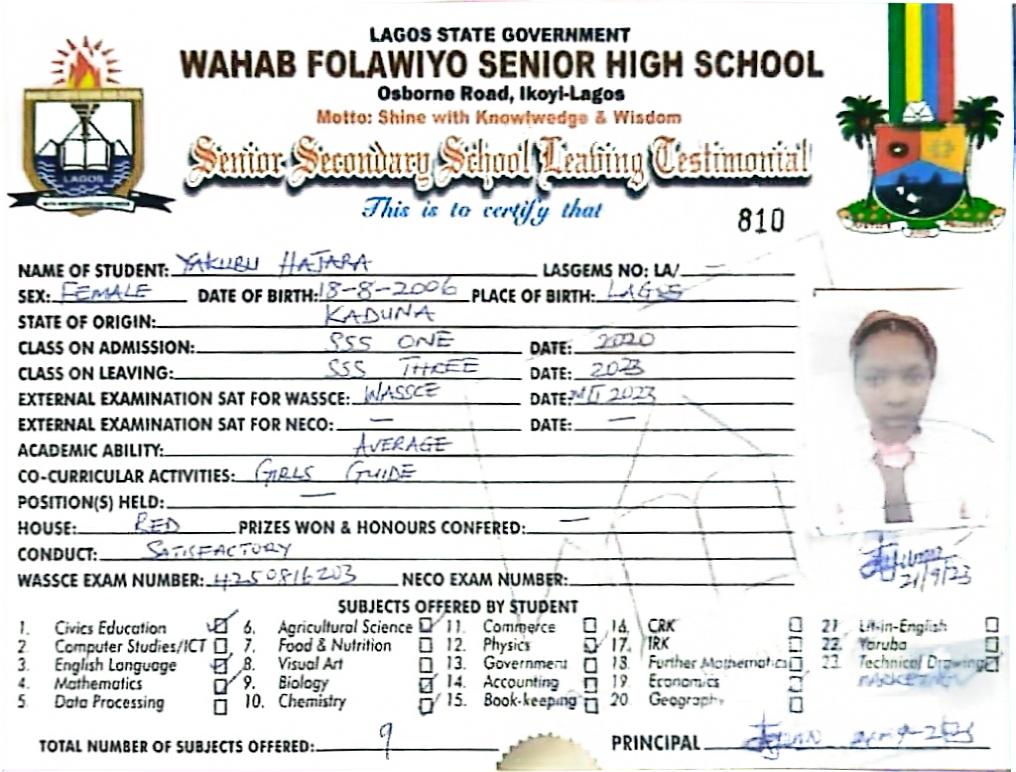 LAGOS STATE GOVERNMENT
WAHAB FOLAWIYO SENIOR HIGH SCHOOL
Osborne Road, Ikoyi-Lagos
Motto: Shine with Knowlwedge & Wisdom
Senior Secondary School Leaving Testimonial
This is to certify that
810
LAGOS
NAME OF STUDENT: YAKUBU HAJARA LASGEMS NO: LA/
SEX: FEMALE DATE OF BIRTH: 18-8-2006 PLACE OF BIRTH: LAGOS
STATE OF ORIGIN: KADUNA
CLASS ON ADMISSION: SSS ONE DATE: 2020
CLASS ON LEAVING: SSS THREE DATE: 2023
EXTERNAL EXAMINATION SAT FOR WASSCE: WASSCE DATE: 2023
EXTERNAL EXAMINATION SAT FOR NECO: — DATE: —
ACADEMIC ABILITY: AVERAGE
CO-CURRICULAR ACTIVITIES: GIRLS GUIDE
POSITION(S) HELD: —
HOUSE: RED PRIZES WON & HONOURS CONFERED: —
CONDUCT: SATISFACTORY
WASSCE EXAM NUMBER: 4250816203 NECO EXAM NUMBER:
21/9/23
SUBJECTS OFFERED BY STUDENT
1. Civics Education 6. Agricultural Science 11. Commerce 16. CRK 21. Lit-in-English
2. Computer Studies/ICT 7. Food & Nutrition 12. Physics 17. IRK 22. Yoruba
3. English Language 8. Visual Art 13. Government 18. Further Mathematics 23. Technical Drawing
4. Mathematics 9. Biology 14. Accounting 19 Economics MARKETING
5. Data Processing 10. Chemistry 15. Book-keeping 20 Geography
TOTAL NUMBER OF SUBJECTS OFFERED: 9 PRINCIPAL